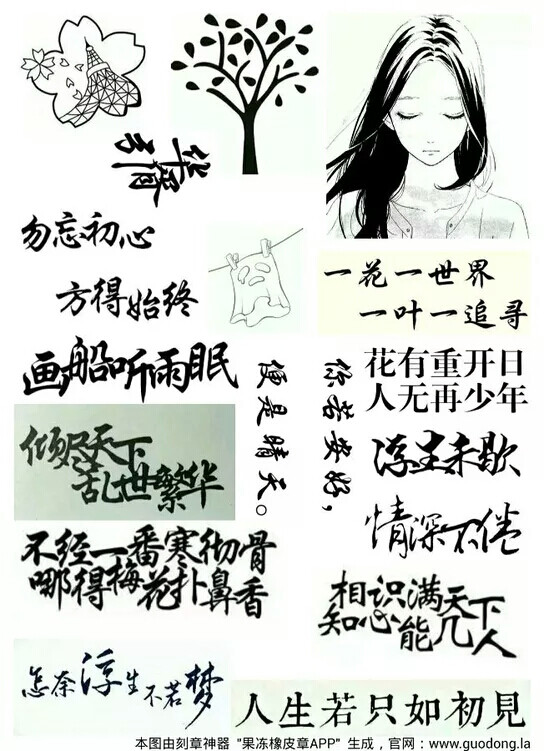 勿忘初心
方得始终
一花一世界
一叶一追寻
画船听雨眠
你若安好，
便是晴天。
花有重开日
人无再少年
倾尽天下
乱世繁华
浮生未歇
情深不倦
不经一番寒彻骨
哪得梅花扑鼻香
相识满天下
知心能几人
怎奈浮生不若梦
人生若只如初見
本图由刻章神器 "果冻橡皮章APP" 生成，官网：www.guodong.la